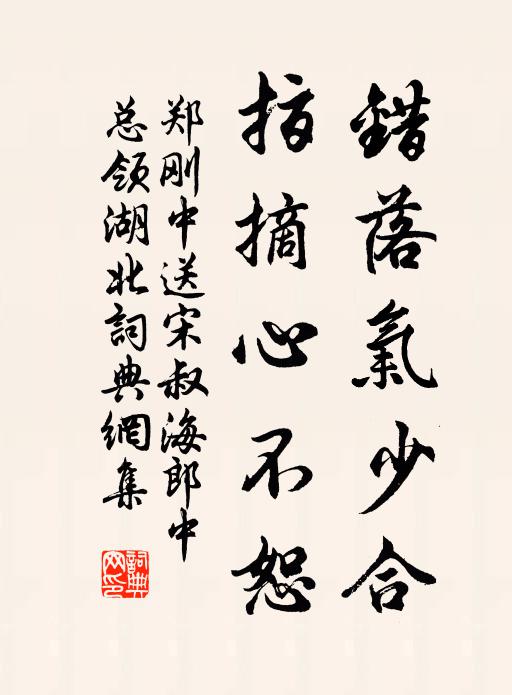 錯落氣少合
指摘心不恕
郑刚中送宋叔海郎中
总领湖北詞典網集
詞典网印